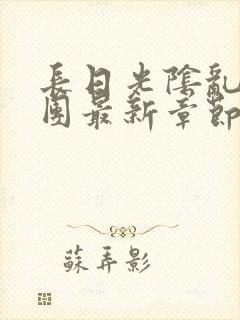 長日光陰亂
團最新章節
蘇弄影